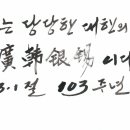 는 당당한 대한의
廣韩银锡 이다
3.1절 103주년